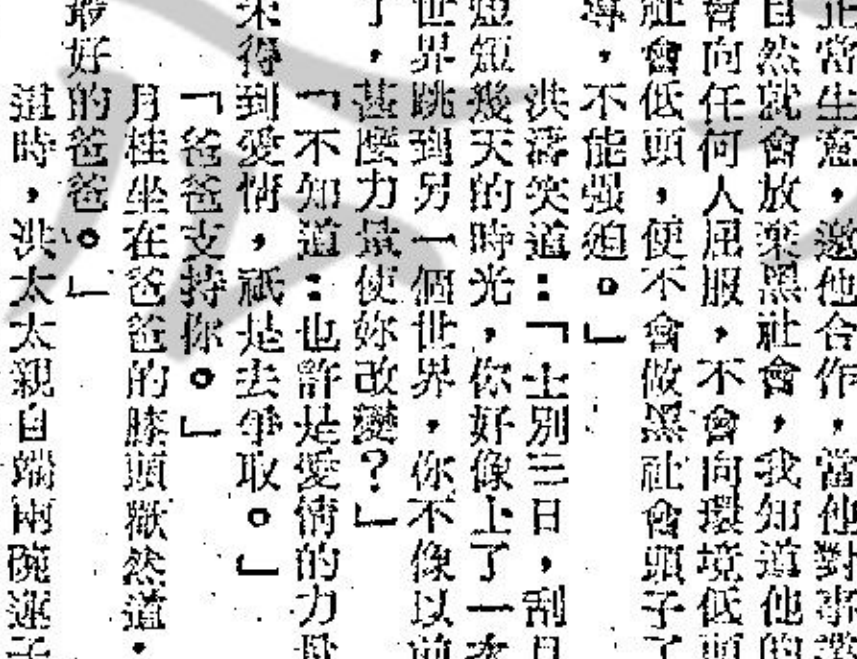 正當生意，邀他合作，當他對事業
自然就會放棄黑社會，我知道他的
會向任何人屈服，不會向環境低頭
社會低頭，便不會做黑社會頭子了
導，不能强迫。」
洪濤笑道：「士別三日，刮目
短短幾天的時光，你好像上了一次
世界跳到另一個世界，你不像以前
了，甚麼力量使妳改變？」
「不知道：也許是愛情的力量
未得到愛情，祇是去爭取。」
「爸爸支持你。」
月桂坐在爸爸的膝頭歡然道，
最好的爸爸。」
這時，洪太太親自端兩碗蓮子